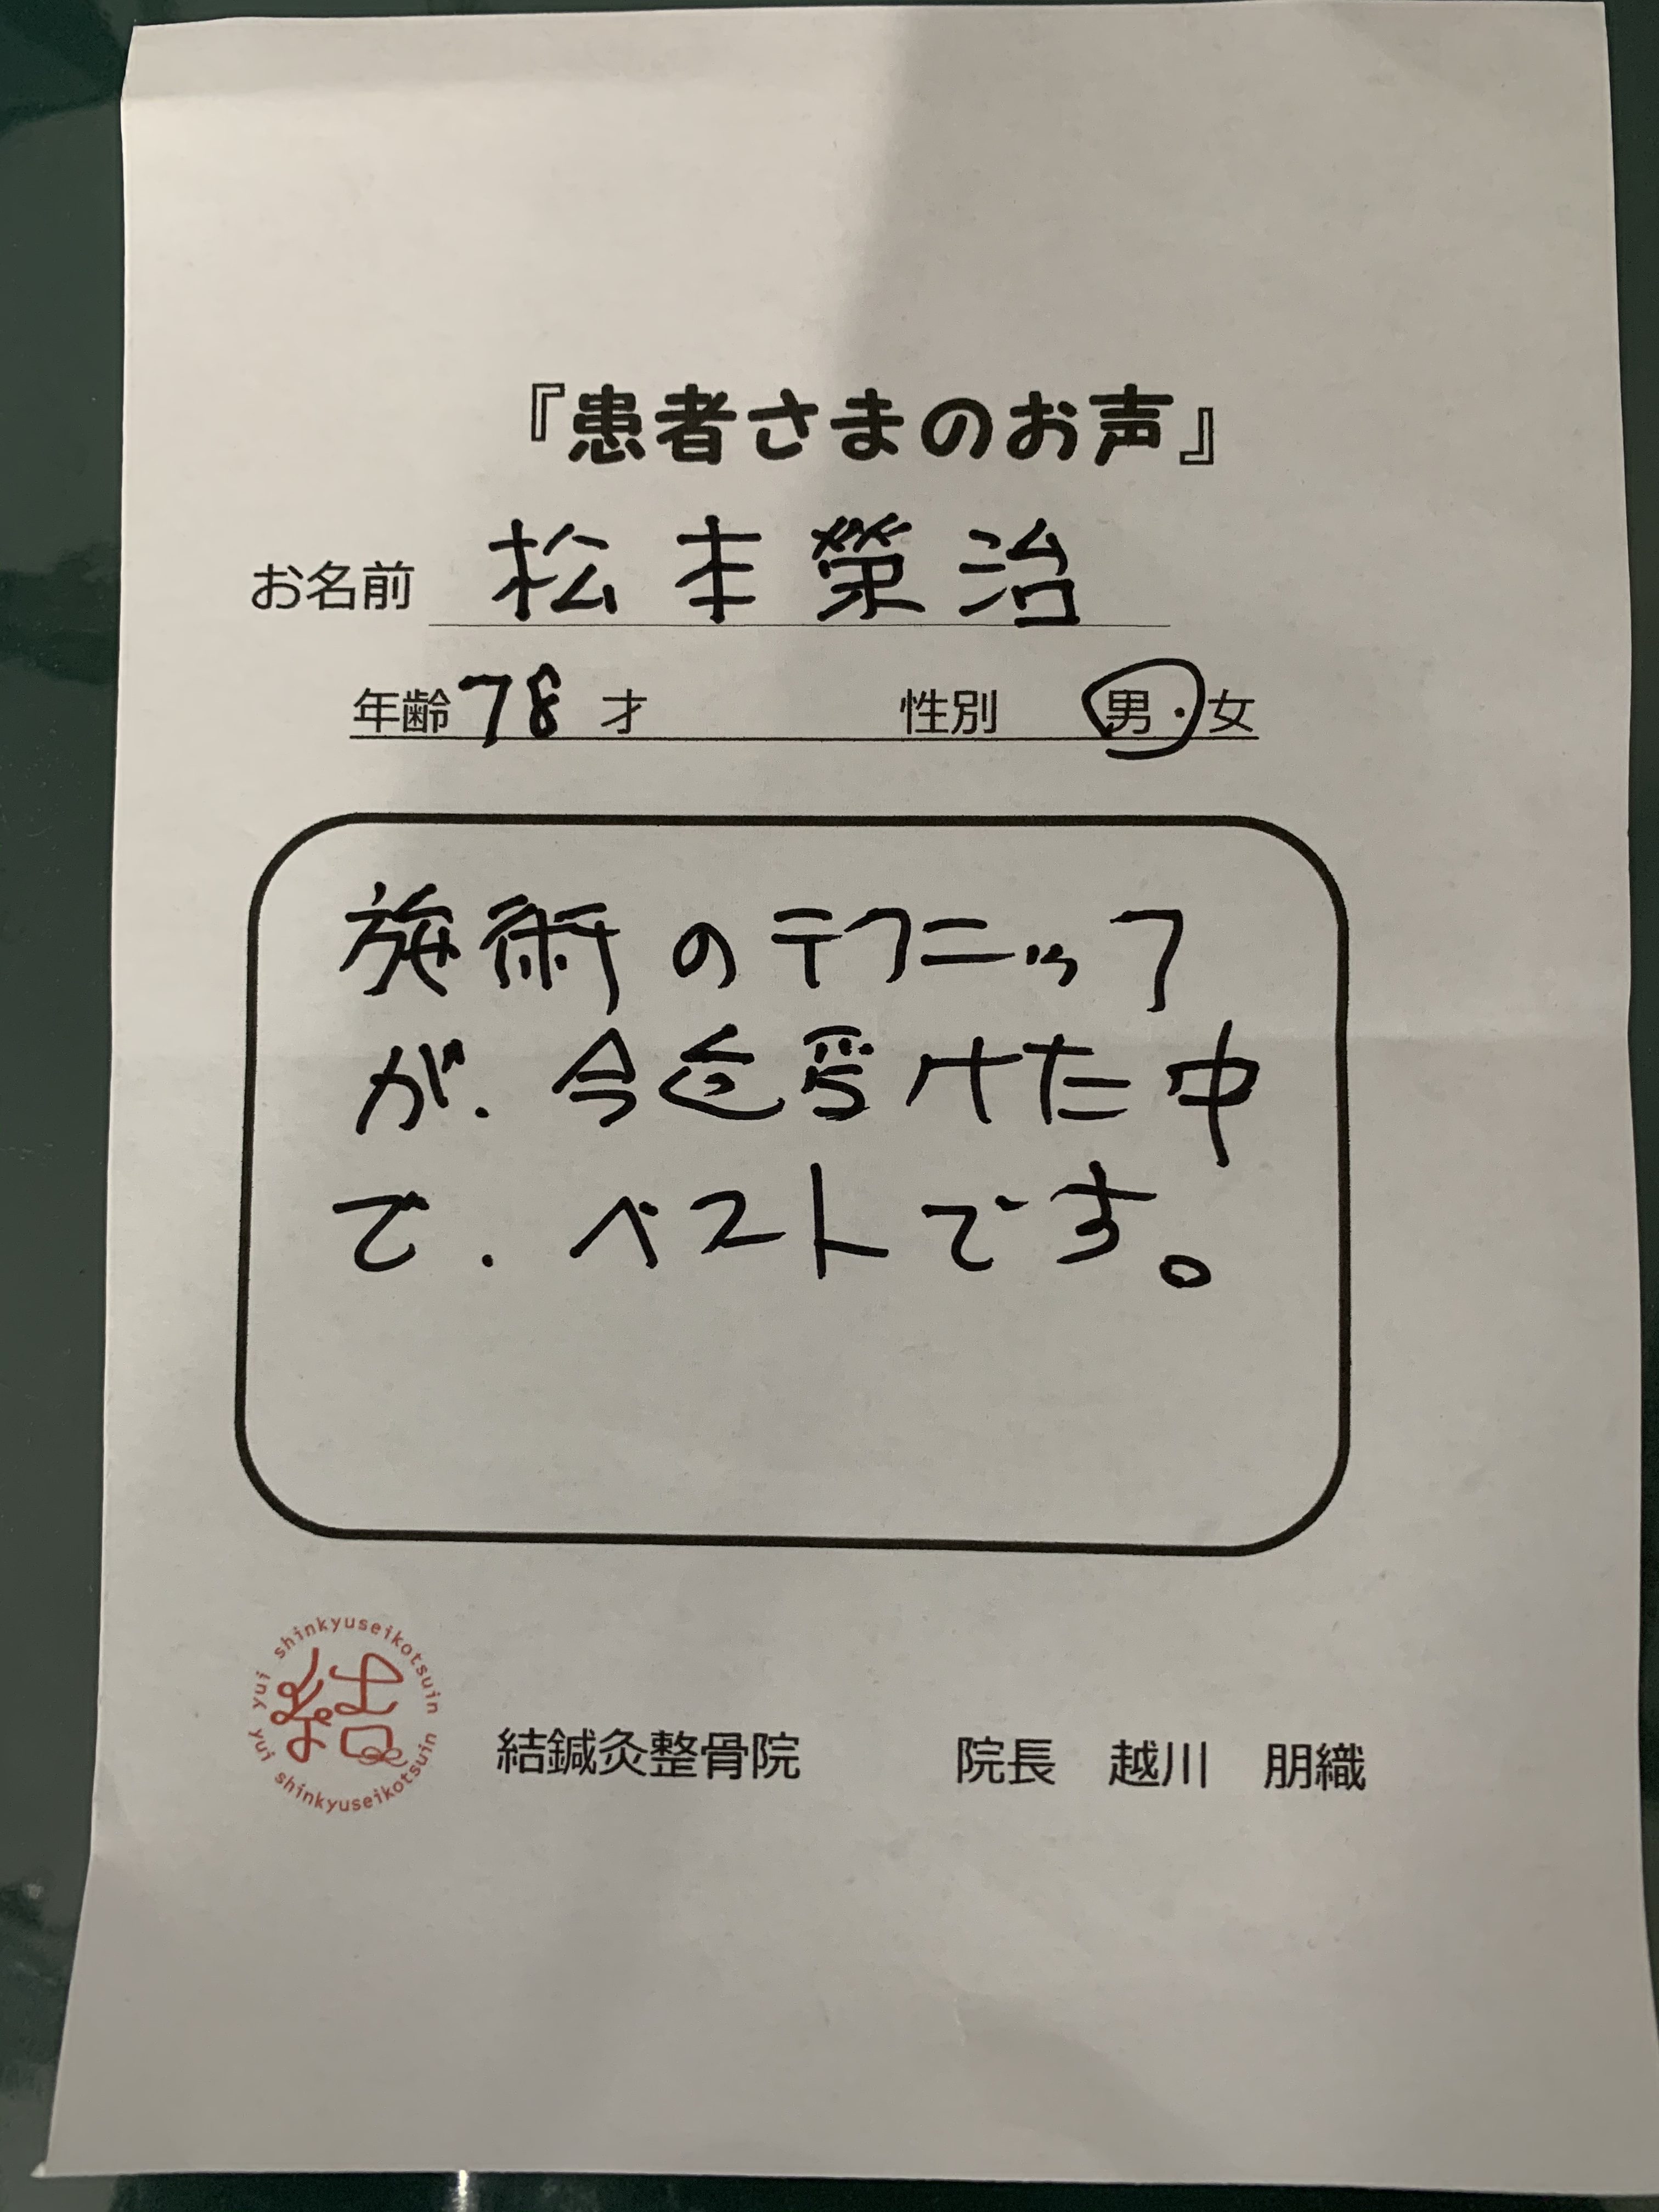 『患者さまのお声』
お名前 松本榮治
年齢 78 才 性別 男・女
施術のテクニック
が、今迄受けた中
で、ベストです。
yui shinkyuseikotsuin
結
yui shinkyuseikotsuin
結鍼灸整骨院 院長 越川 朋織